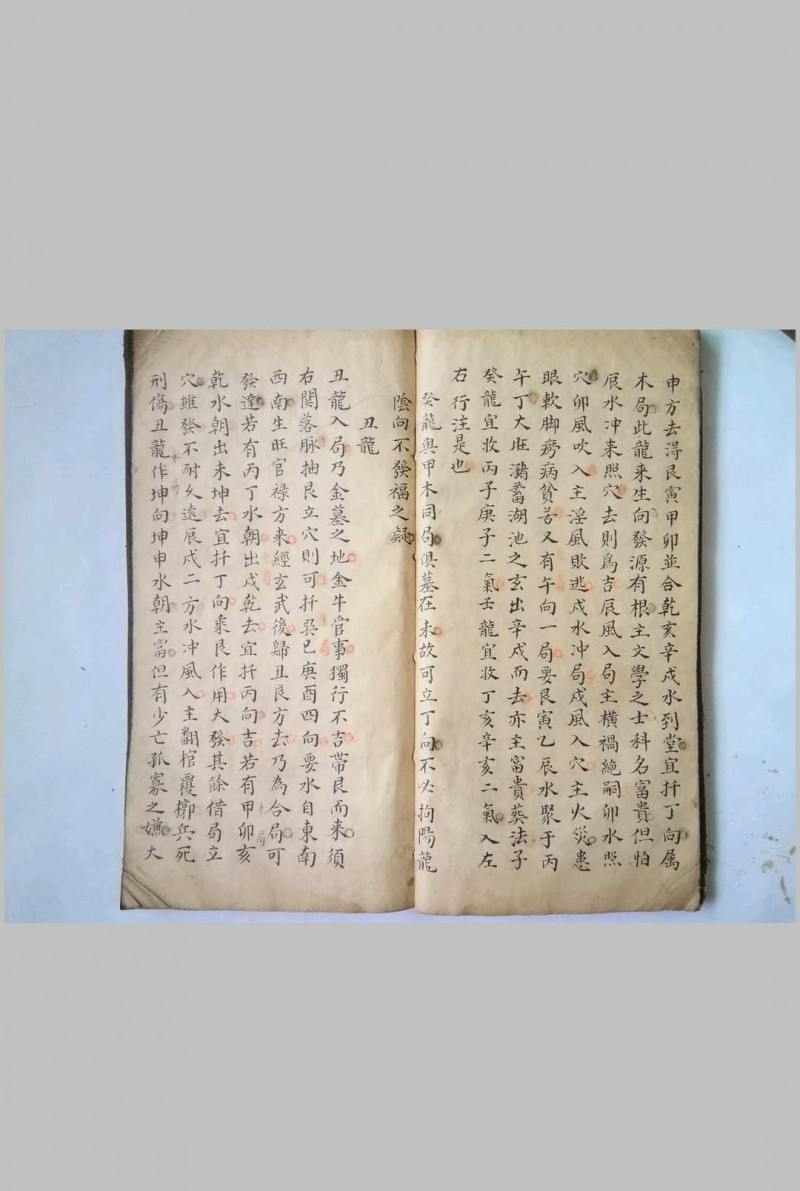 申方去得艮寅甲卯並合乾亥辛戌水到堂宜扦丁向属
木局此龍来生向發源有根主文學之士科名富貴但怕
辰水冲来照穴去則爲吉辰風入局主横禍絶嗣卯水照
穴卯風吹入主淫風敗逃戌水冲局戌風入穴主火災患
眼軟脚癆病貧苦又有午向一局要艮寅乙辰水聚于丙
午丁大旺瀦蓄湖池之玄出辛戌而去亦主富貴葬法子
癸龍宜收丙子庚子二氣壬龍宜收丁亥辛亥二氣入左
右行注是也
癸龍與甲木同局俱墓在未故可立丁向不必拘陽龍
陰向不發福之疑
丑龍
丑龍入局乃金墓之地金牛官事獨行不吉帶艮而来須
右関落脉抽艮立穴則可扦巽巳庚酉四向要水自東南
西南生旺官禄方来經玄武後歸丑艮方去乃為合局可
發達若有丙丁水朝出戌乾去宜扦丙向吉若有甲卯亥
乾水朝出未坤去宜扦丁向乘艮作用大發其餘借局立
穴雖發不耐久遠辰戌二方水冲風入主翻棺覆槨兵死
刑傷丑龍作坤向坤申水朝主富但有少亡孤寡之嫌大